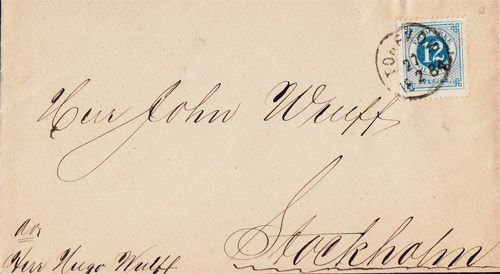 12
27
2
Herr John Wulff
Stockholm
Herr Hugo Wulff